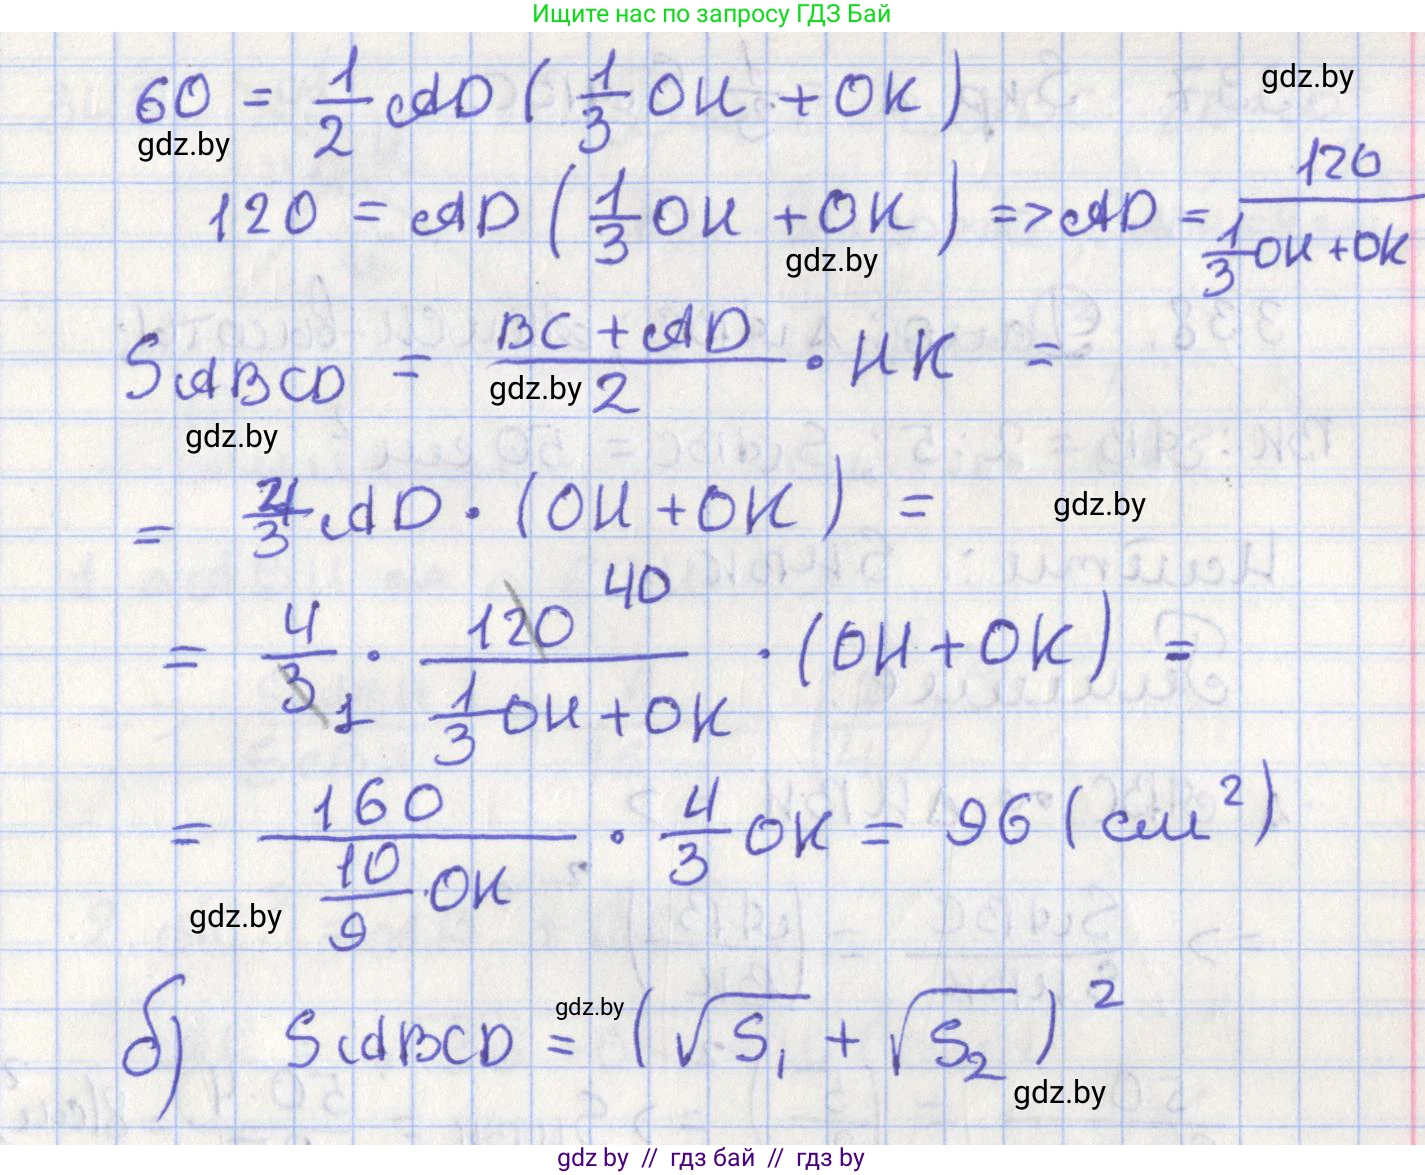 Ищите нас по запросу ГДЗ Бай
60 = 1/2 AD (1/3 OH + OK)
gdz.by
gdz.by
120 = AD (1/3 OH + OK) => AD = 120 / (1/3 OH + OK)
gdz.by
SABCD = (BC + AD)/2 · HK =
gdz.by
gdz.by
= 4/3 AD · (OH + OK) =
gdz.by
= 4/3 1 · 120 40 / (1/3 OH + OK) · (OH + OK) =
= 160 / (10/9 · OK) · 4/3 OK = 96 (см²)
gdz.by
б) SABCD = (√S₁ + √S₂)²
gdz.by
gdz.by
gdz by // гдз бай // gdz by